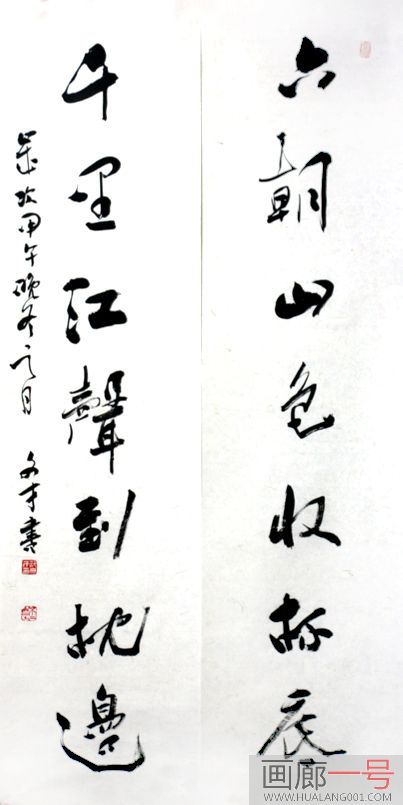 六朝山色收杯底
千里江聲到枕邊
歲次甲午晚冬之月
文才書
画廊一号
WWW.HUALANG001.COM